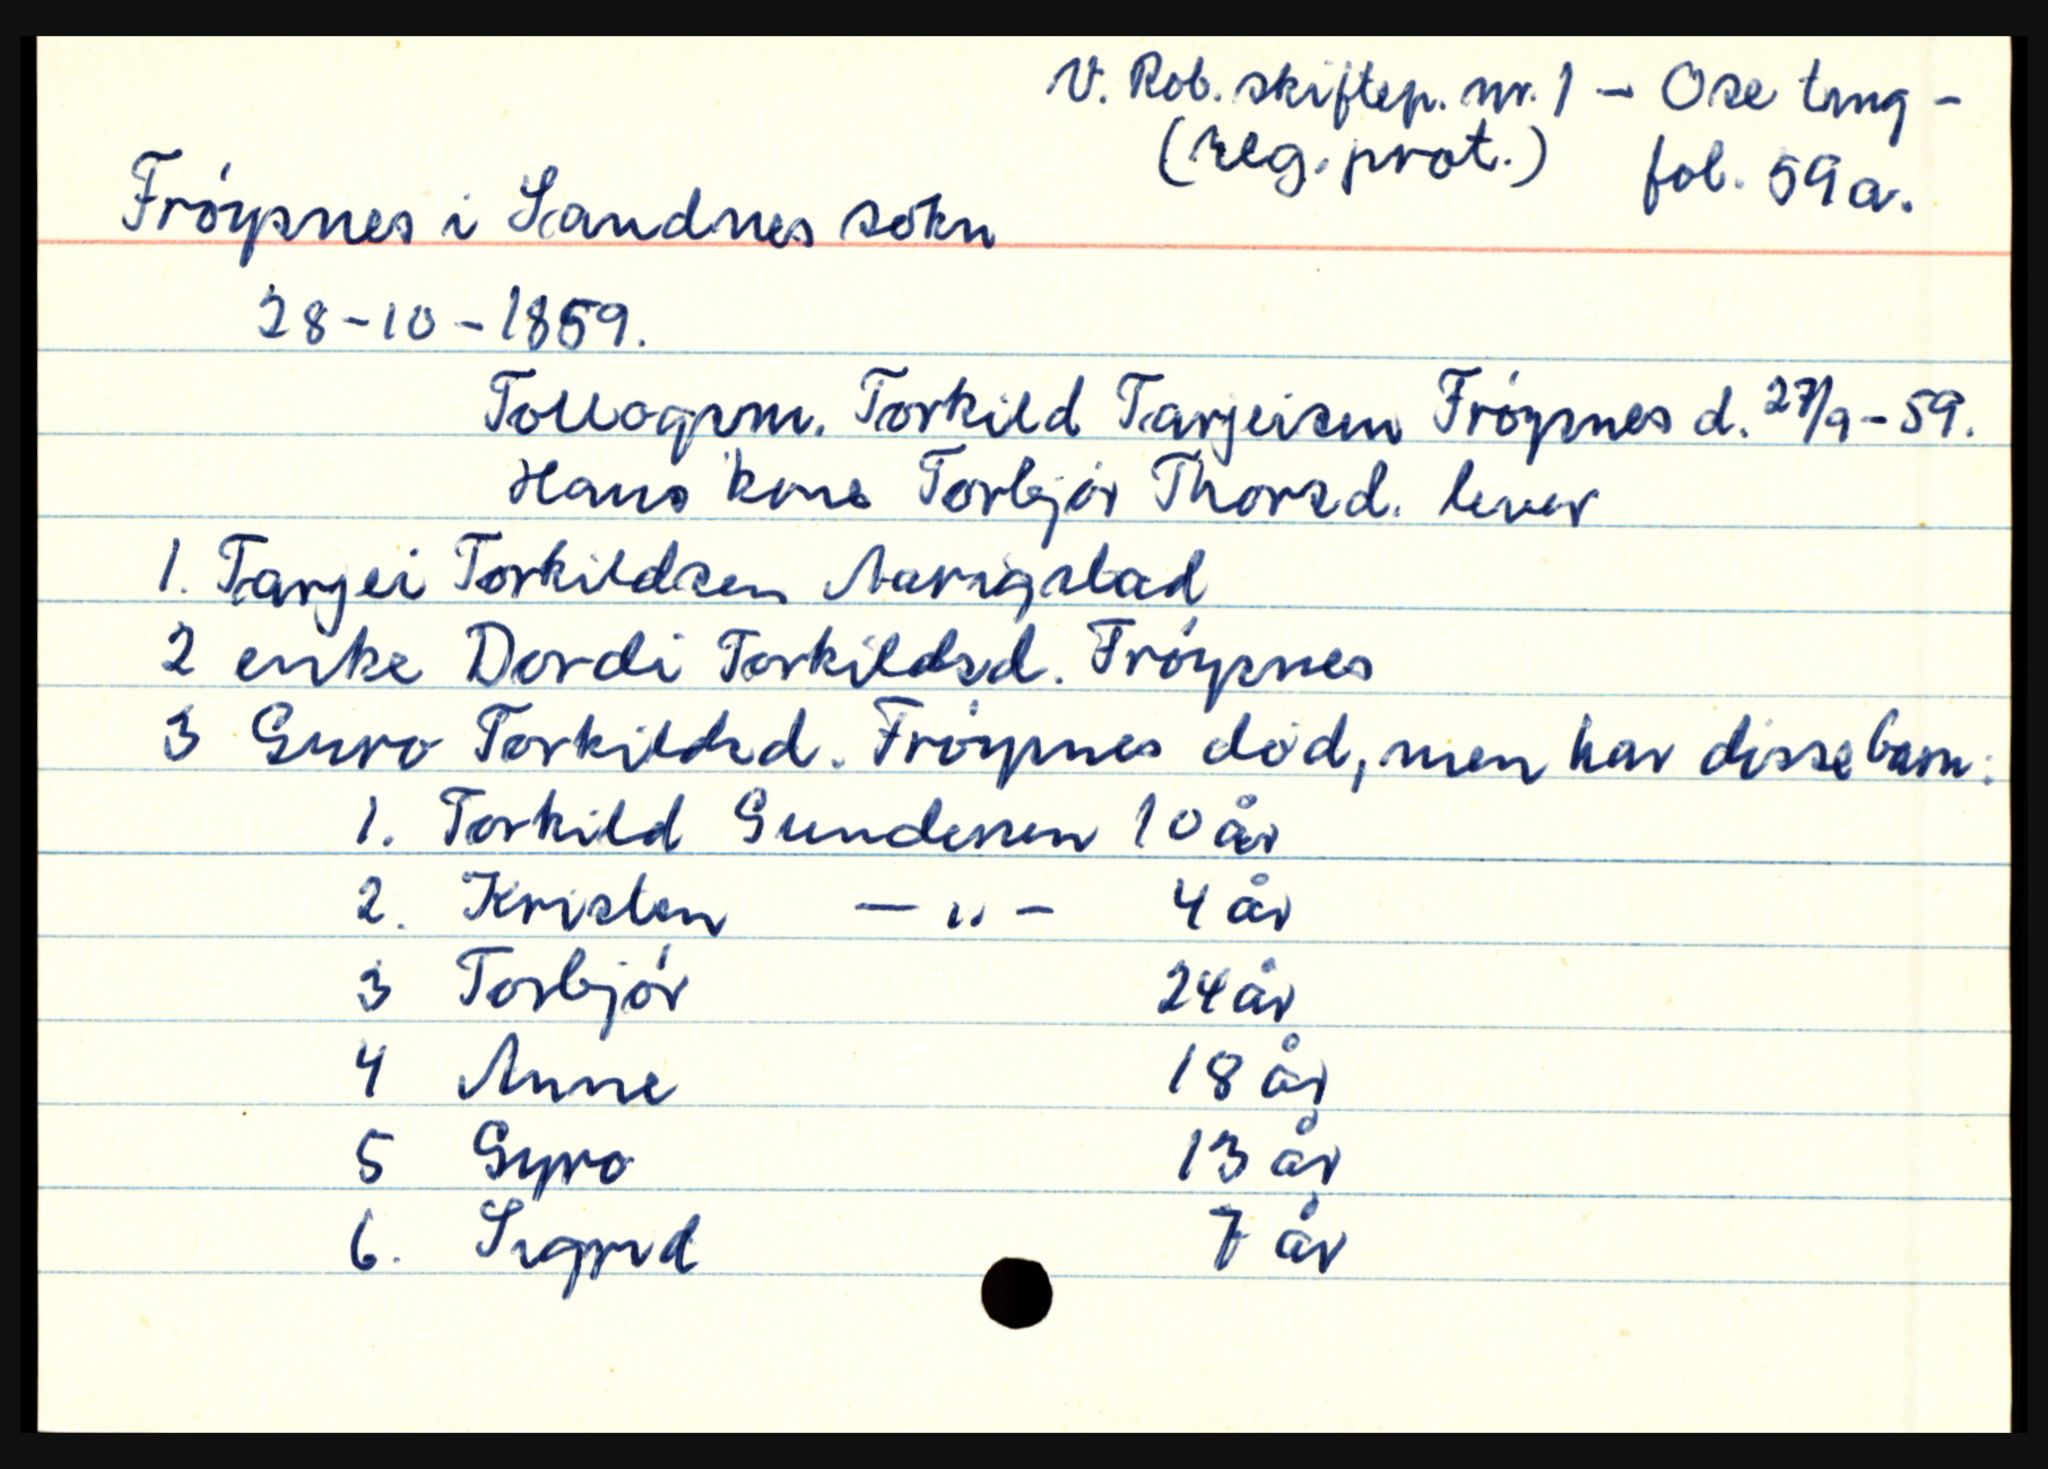 V. Rob. skiftep. nr. 1 – Ose tng –
(reg. prot.) fol. 59a.
Frøysnes i Sandnes sokn
28-10-1859.
Tollogsm. Torkild Tarjeisen Frøysnes d. 27/9-59.
Hans kone Torbjør Thorsd. lever
1. Tarjei Torkildsen
2 enke Dordi Torkildsd. Frøysnes
3 Guro Torkildsd. Frøysnes død, men har disse barn:
1. Torkild Gundersen 10 år
2. Kristen — " – 4 år
3 Torbjør 24 år
4 Anne 18 år
5 Gyro 13 år
6. Sigrid 7 år